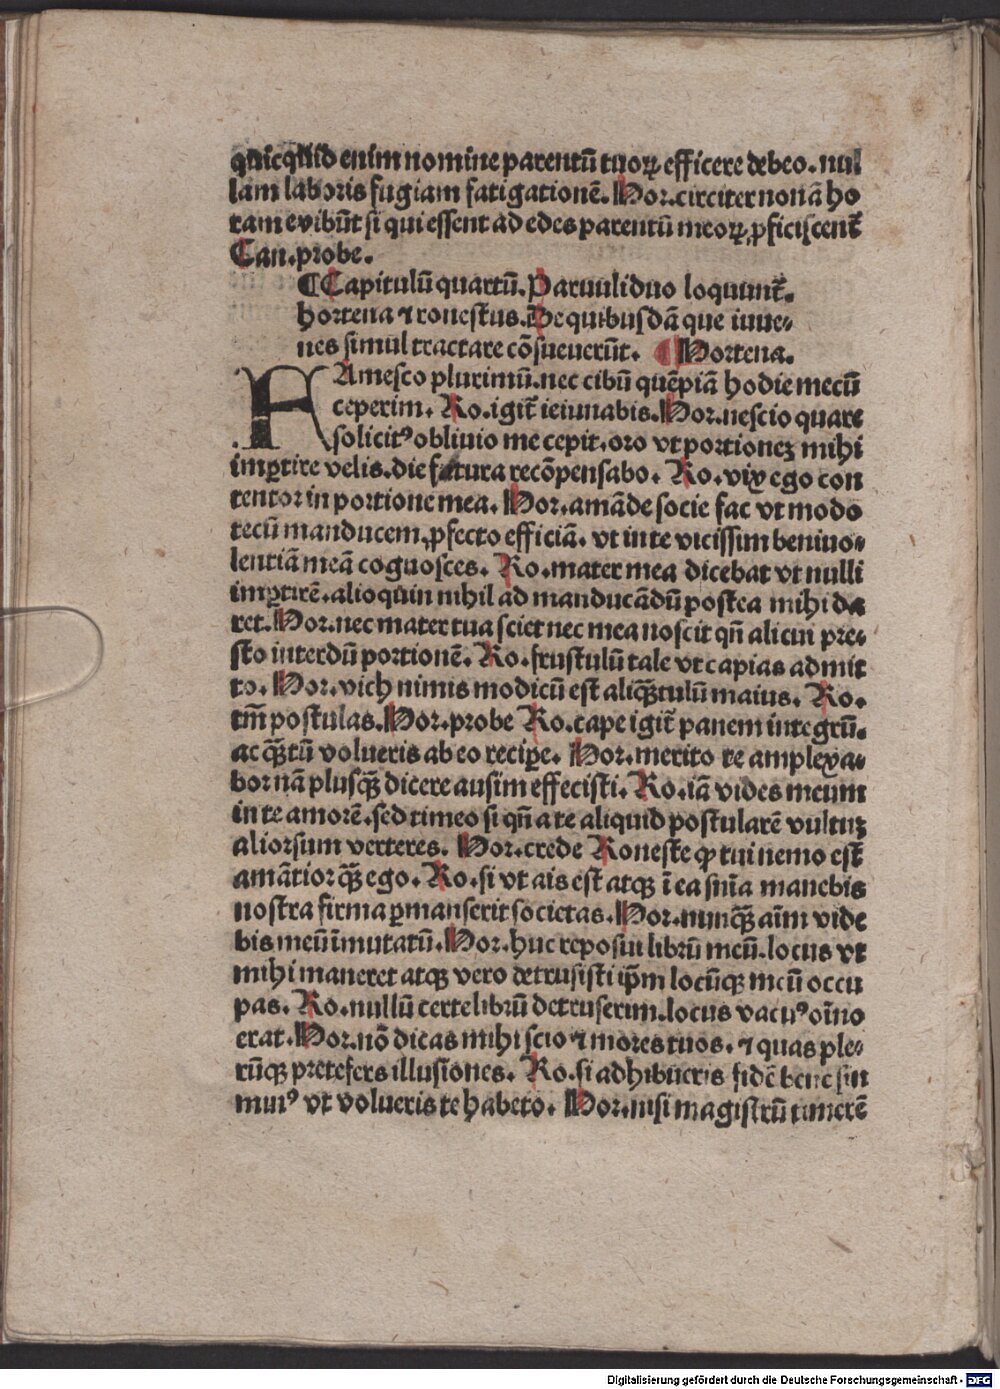 quicquid enim nomine parentū tuoꝝ efficere debeo. nul
lam laboris fugiam fatigationē. Hor. circiter nonā ho
ram exibūt si qui essent ad edes parentū meoꝝ ꝓficiscent᷑
Can. probe.
¶ Capitulū quartū. Paruuli duo loquunt᷑.
hortena ⁊ ronestus. De quibusdā que iuue⸗
nes simul tractare cōsueuerūt. ¶ Hortena.
FAmesco plurimū. nec cibū quēpiā hodie mecū
ceperim. Ro. igit᷑ ieiunabis. Hor. nescio quare
solicitꝰ obliuio me cepit. oro vt portionez mihi
imꝑtire velis. die futura recōpensabo. Ro. vix ego con
tentor in portione mea. Hor. amāde socie fac vt modo
tecū manducem. ꝓfecto efficiā. vt in te vicissim beniuo⸗
lentiā meā cognosces. Ro. mater mea dicebat vt nulli
imꝑtirē. alioquin nihil ad manducādū postea mihi da
ret. Hor. nec mater tua sciet nec mea noscit qn̄ alicui pre⸗
sto interdū portionē. Ro. frustulū tale vt capias admit
to. Hor. vich nimis modicū est aliqꝫ̄tulū maius. Ro.
tm̄ postulas. Hor. probe Ro. cape igit᷑ panem integrū.
ac qꝫ̄tū volueris ab eo recipe. Hor. merito te amplexa⸗
bor nā plusqꝫ̄ dicere ausim effecisti. Ro. iā vides meum
in te amorē. sed timeo si qn̄ a te aliquid postularē vultuꝫ
aliorsum verteres. Hor. crede Roneste ꝙ tui nemo est
amātior qꝫ̄ ego. Ro. si vt ais est atqꝫ ī ea snīa manebis
nostra firma ꝑmanserit societas. Hor. nunqꝫ̄ aīm vide
bis meū īmutatū. Hor. huc reposui librū meū. locus vt
mihi maneret atqꝫ vero detrusisti ip̄m locūqꝫ meū occu
pas. Ro. nullū certe librū detruserim. locus vacuꝰ oīno
erat. Hor. nō dicas mihi scio ⁊ mores tuos. ⁊ quas ple⸗
rūqꝫ pretefers illusiones. Ro. si adhibueris fidē bene sin
muiꝰ vt volueris te habeto. Hor. nisi magistrū timerē
Digitalisierung gefördert durch die Deutsche Forschungsgemeinschaft - DFG